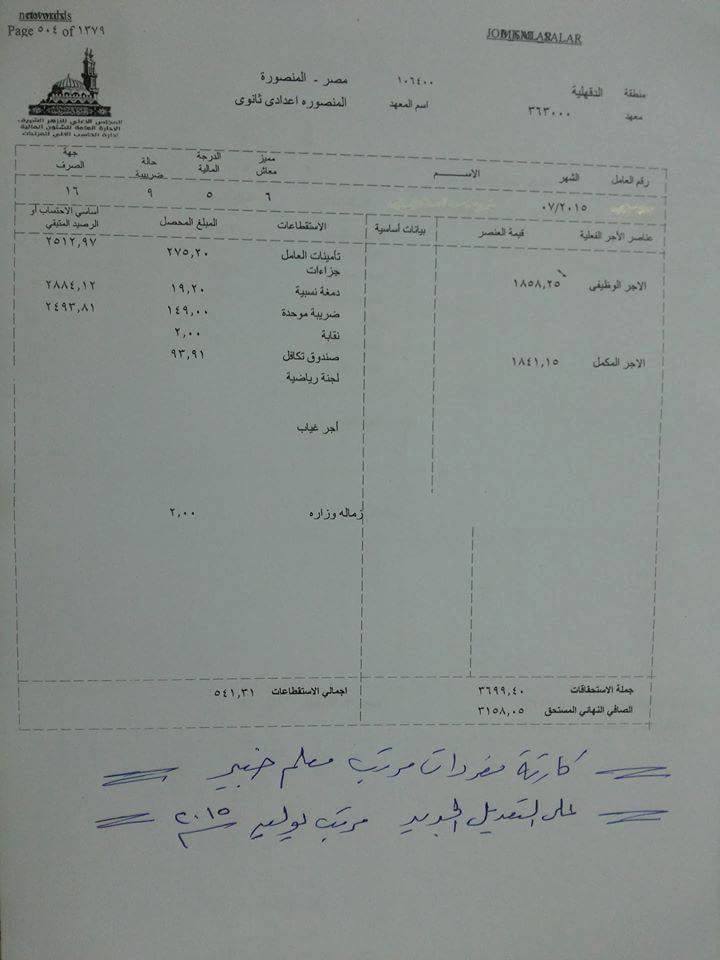 Page ٥٠٤ of ١٣٧٩
المجلس الاعلى للازهر الشريف
الادارة العامة للشئون المالية
ادارة الحاسب الالى المرتبات
منطقة الدقهلية ١٠٦٤٠٠ مصر - المنصورة
معهد ٣٦٣٠٠٠ اسم المعهد المنصوره اعدادى ثانوى
رقم العامل الشهر الاســـم مميز معاش الدرجة المالية حالة ضريبية جهة الصرف
٠٧/٢٠١٥ ٦ ٥ ٩ ١٦
عناصر الأجر الفعلية قيمة العنصر بيانات أساسية الاستقطاعات المبلغ المحصل أساسي الاحتساب أو الرصيد المتبقي
تأمينات العامل ٢٧٥,٢٠ ٢٥١٢,٩٧
جزاءات
الاجر الوظيفى ١٨٥٨,٢٥ دمغة نسبية ١٩,٢٠ ٢٨٨٤,١٢
ضريبة موحدة ١٤٩,٠٠ ٢٤٩٣,٨١
نقابة ٢,٠٠
الاجر المكمل ١٨٤١,١٥ صندوق تكافل ٩٣,٩١
لجنة رياضية
أجر غياب
زماله وزاره ٢,٠٠
جملة الاستحقاقات ٣٦٩٩,٤٠ اجمالي الاستقطاعات ٥٤١,٣١
الصافي النهائي المستحق ٣١٥٨,٠٥
كارتة مفردات مرتب معلم خبير
على التعديل الجديد مرتب يوليو ٢٠١٥